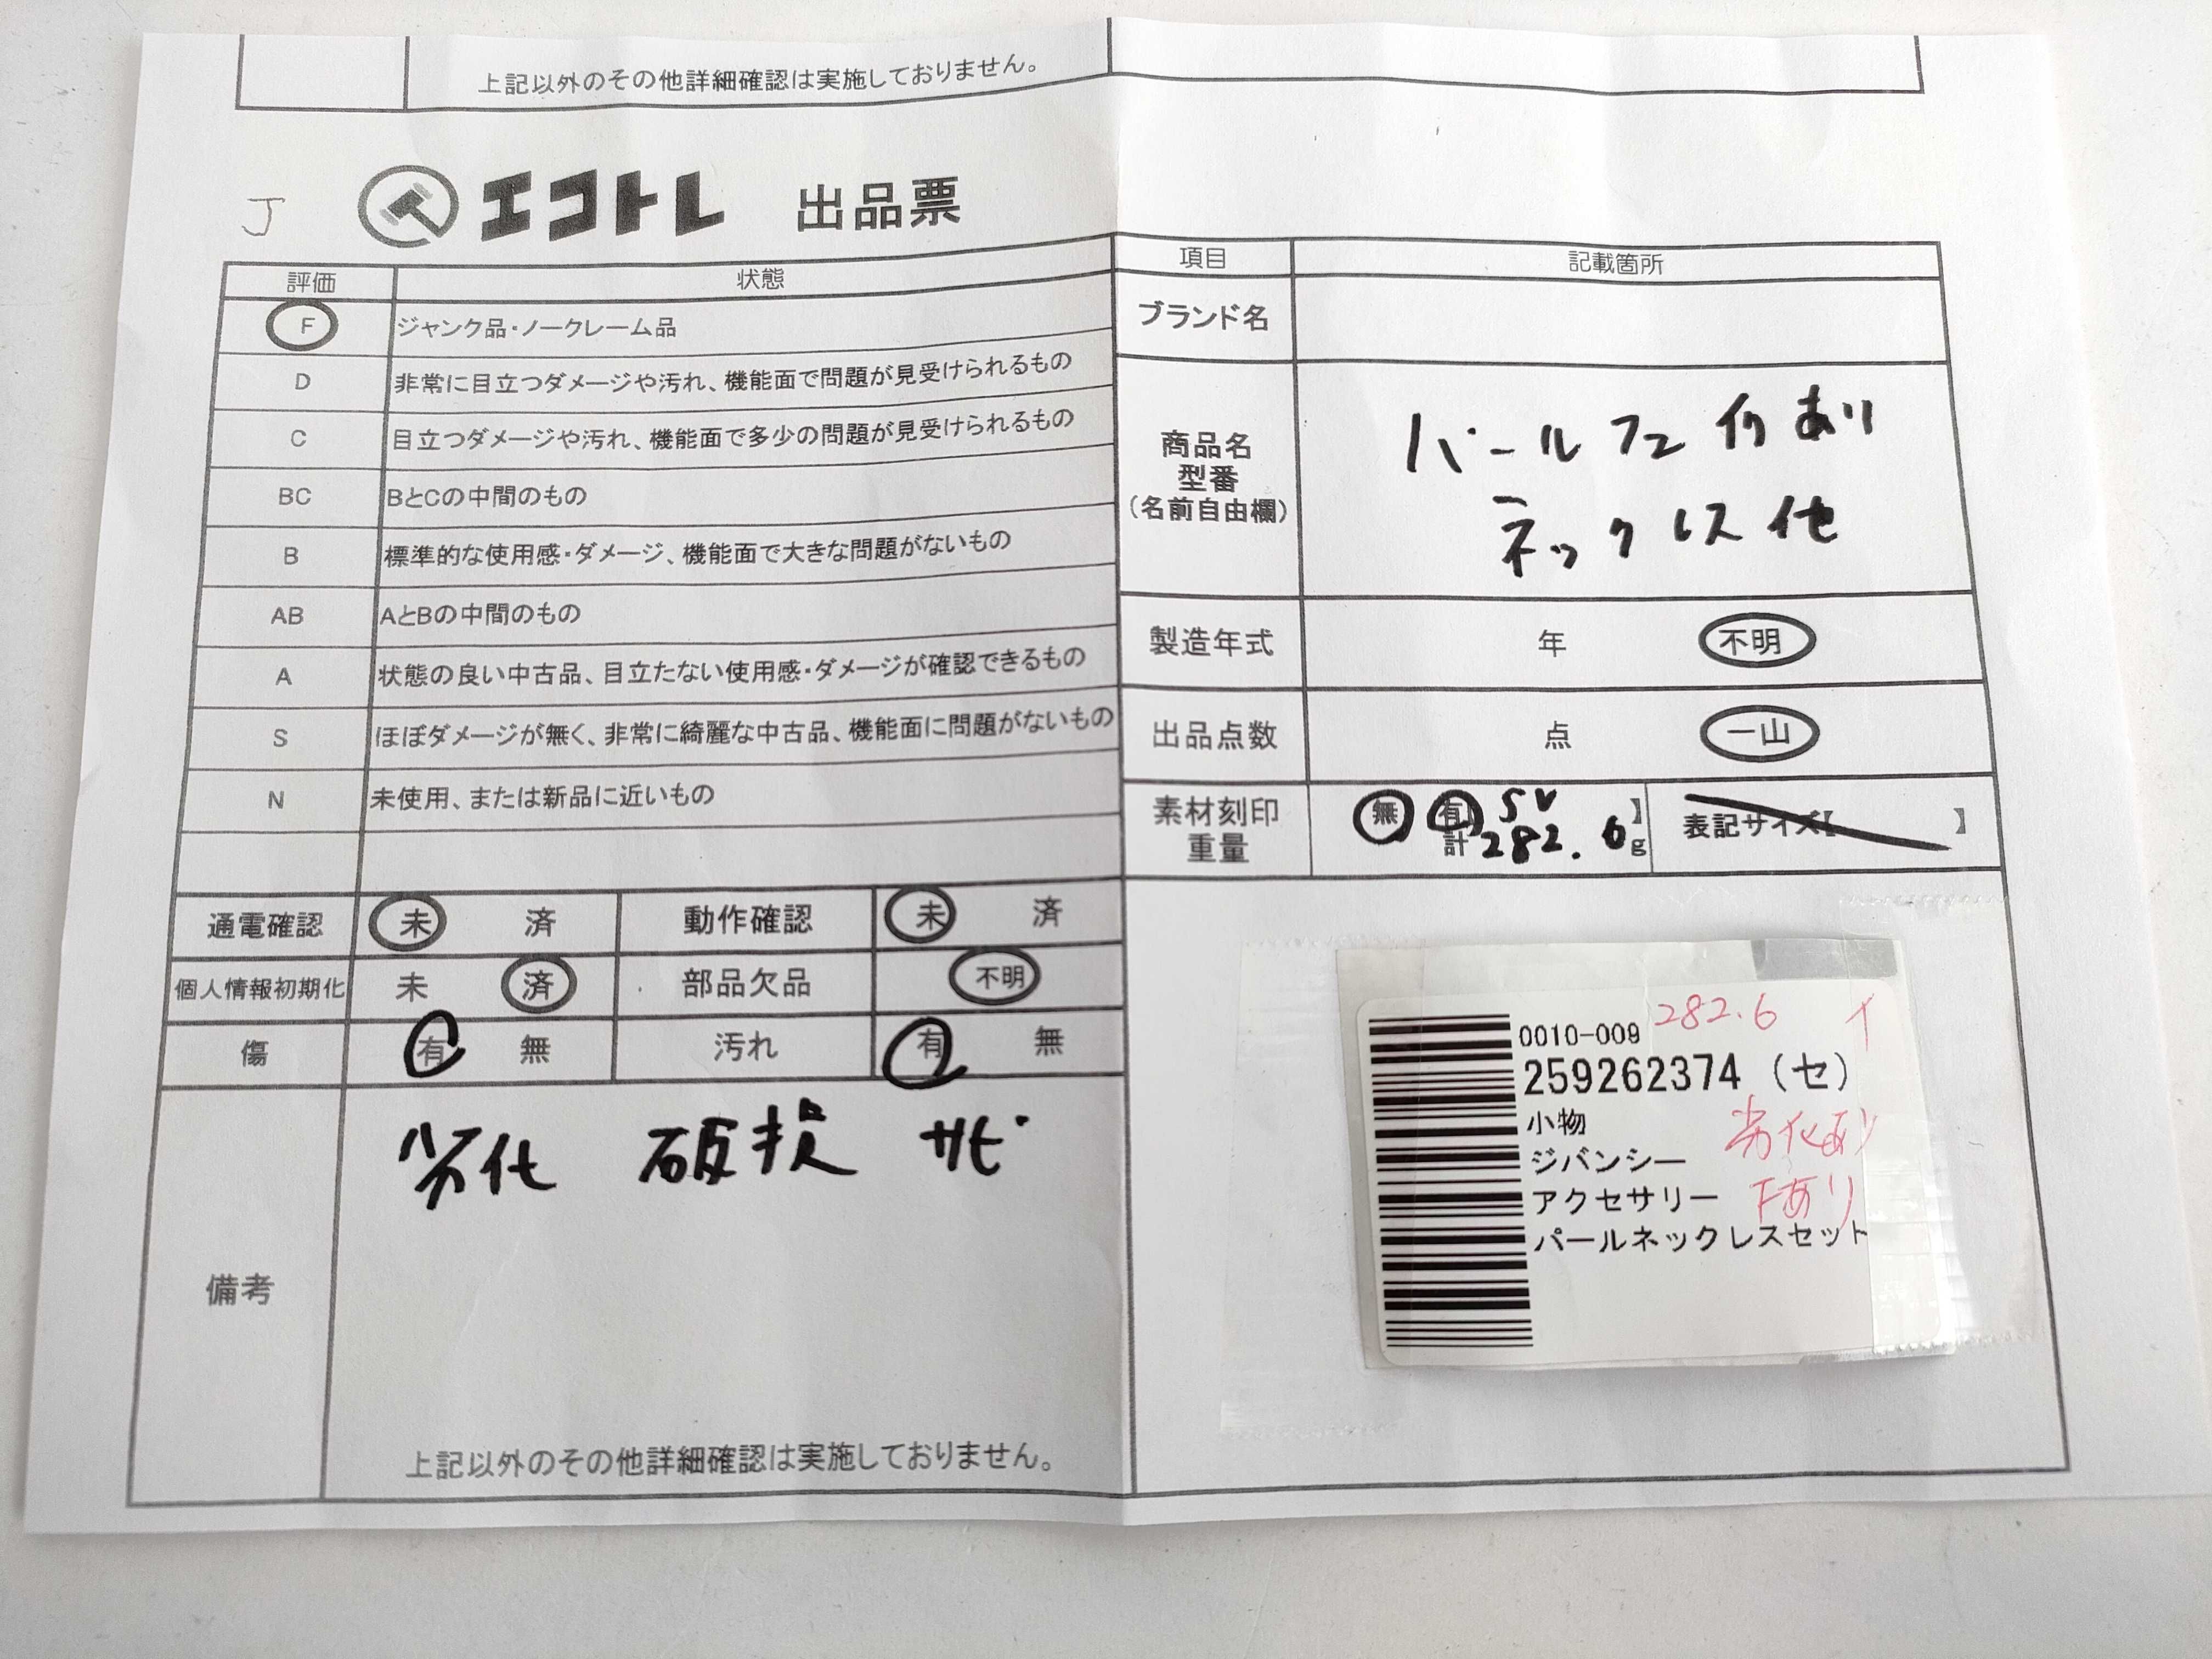 上記以外のその他詳細確認は実施しておりません。
J エコトレ 出品票
評価 状態
F ジャンク品・ノークレーム品
D 非常に目立つダメージや汚れ、機能面で問題が見受けられるもの
C 目立つダメージや汚れ、機能面で多少の問題が見受けられるもの
BC BとCの中間のもの
B 標準的な使用感・ダメージ、機能面で大きな問題がないもの
AB AとBの中間のもの
A 状態の良い中古品、目立たない使用感・ダメージが確認できるもの
S ほぼダメージが無く、非常に綺麗な中古品、機能面に問題がないもの
N 未使用、または新品に近いもの
通電確認 未 済 動作確認 未 済
個人情報初期化 未 済 部品欠品 不明
傷 有 無 汚れ 有 無
備考
劣化 破損 サビ
上記以外のその他詳細確認は実施しておりません。
項目 記載箇所
ブランド名
商品名
型番
(名前自由欄)
パール フェイクあり
ネックレス他
製造年式 年 不明
出品点数 点 一山
素材刻印
重量
無 有 SV 】
計 282.6g
表記サイズ【 】
282.6 イ
0010-009
259262374 (セ)
小物
劣化あり
ジバンシー
Fあり
アクセサリー
パールネックレスセット